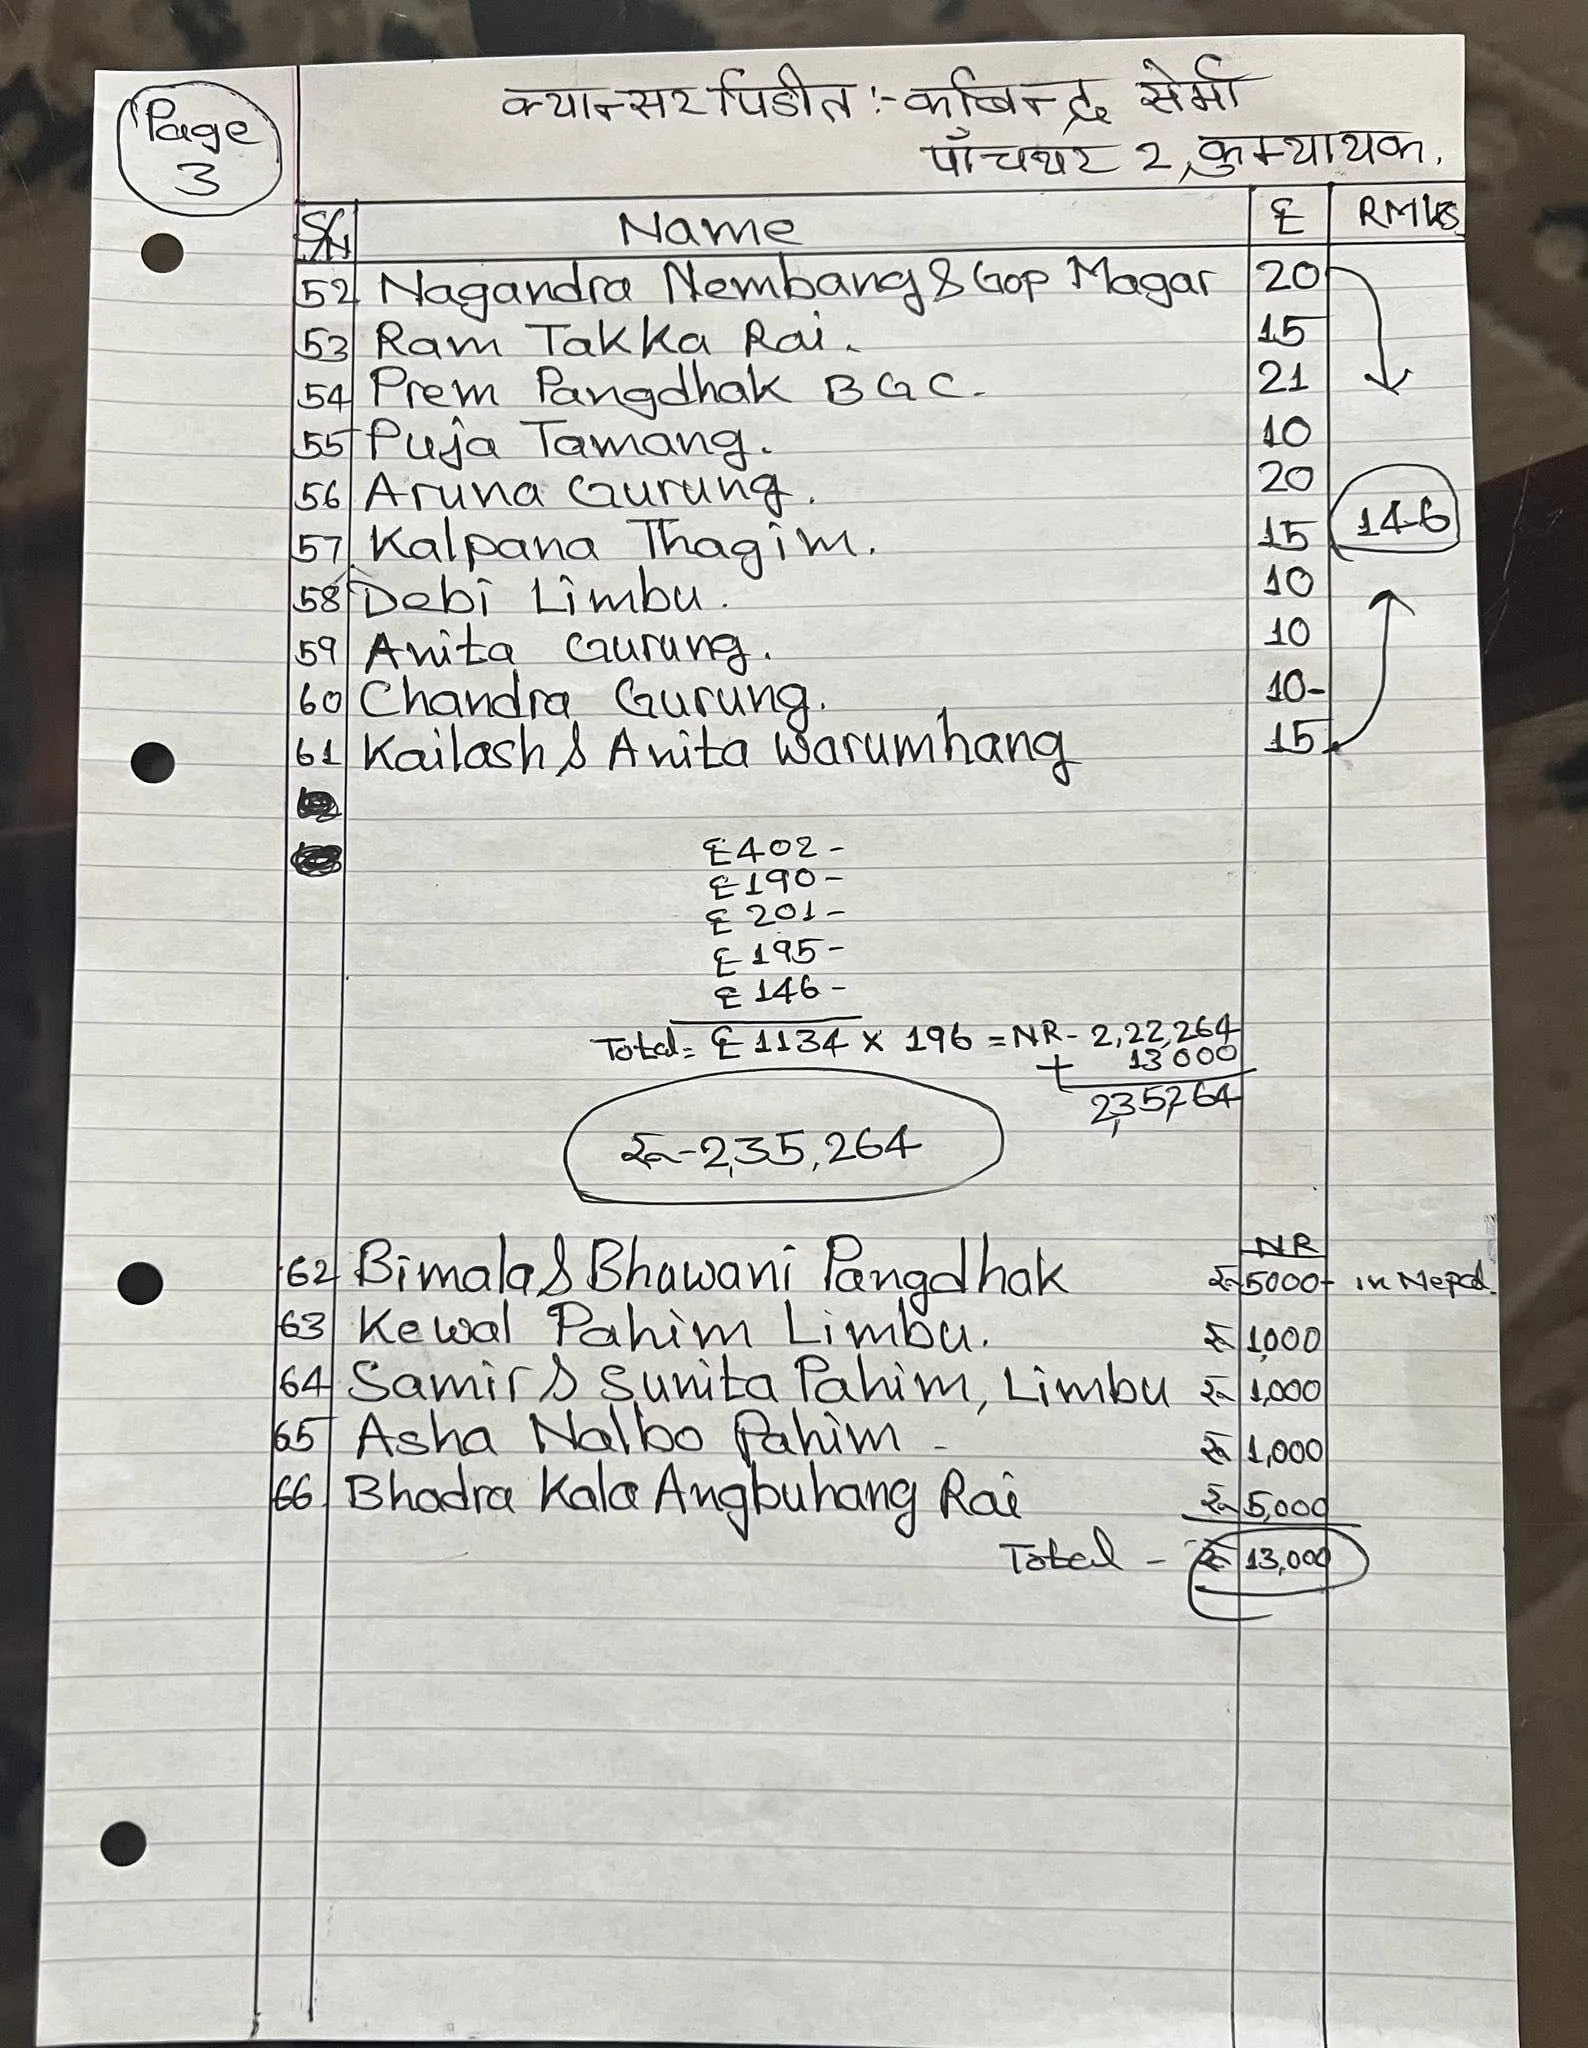 Page
3
क्यान्सर पिडीत :- कबिन्द्र सेर्मा
पाँचथर २, कुम्यायक.
S/N Name £ RMKS
52 Nagandra Nembang & Gop Magar 20
53 Ram Takka Rai. 15
54 Prem Pangdhak BGC. 21
55 Puja Tamang. 10
56 Aruna Gurung. 20
57 Kalpana Thagim. 15 146
58 Debi Limbu. 10
59 Anita Gurung. 10
60 Chandra Gurung. 10-
61 Kailash & Anita Warumhang 15
£402-
£190-
£201-
£195-
£146-
Total= £1134 x 196 = NR- 2,22,264
+ 13000
2,35,264
रू-2,35,264
NR
62 Bimala & Bhawani Pangdhak रू 5000- in Nepal.
63 Kewal Pahim Limbu. रू 1,000
64 Samir & Sunita Pahim, Limbu रू 1,000
65 Asha Nalbo Pahim - रू 1,000
66 Bhadra Kala Angbuhang Rai रू 5,000
Total - रू 13,000